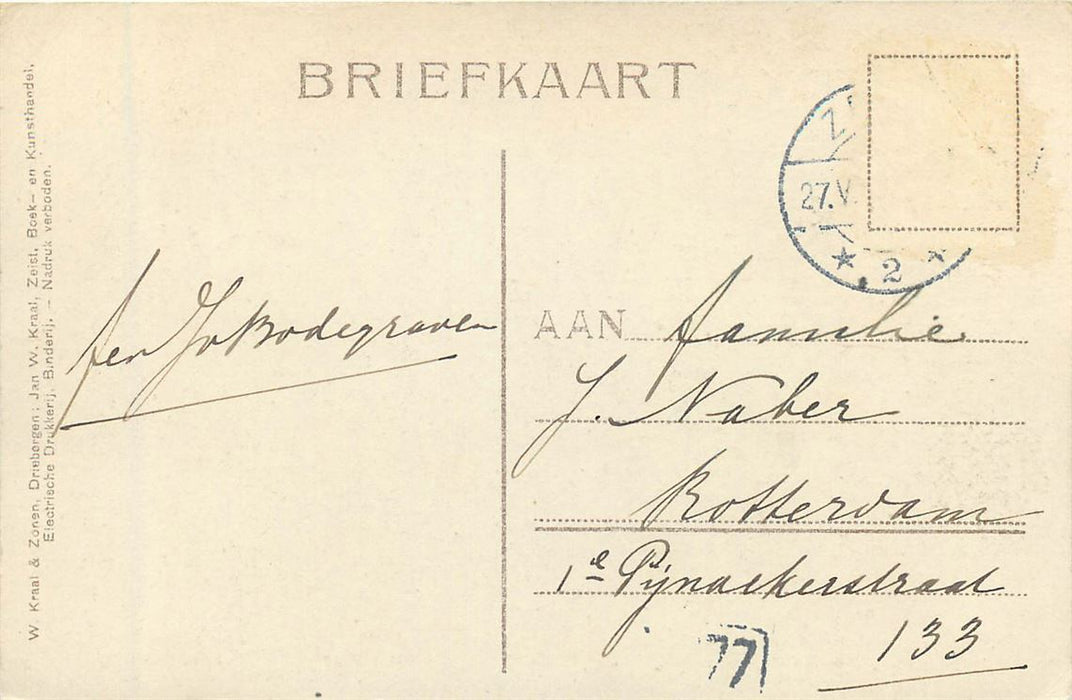 BRIEFKAART
W. Kraal & Zonen, Driebergen; Jan W. Kraal, Zeist, Boek- en Kunsthandel,
Electrische Drukkerij, Binderij. - Nadruk verboden.
27.V
2
Bodegraven
AAN familie
J. Naber
Rotterdam
1e Pijnackerstraat
133
77